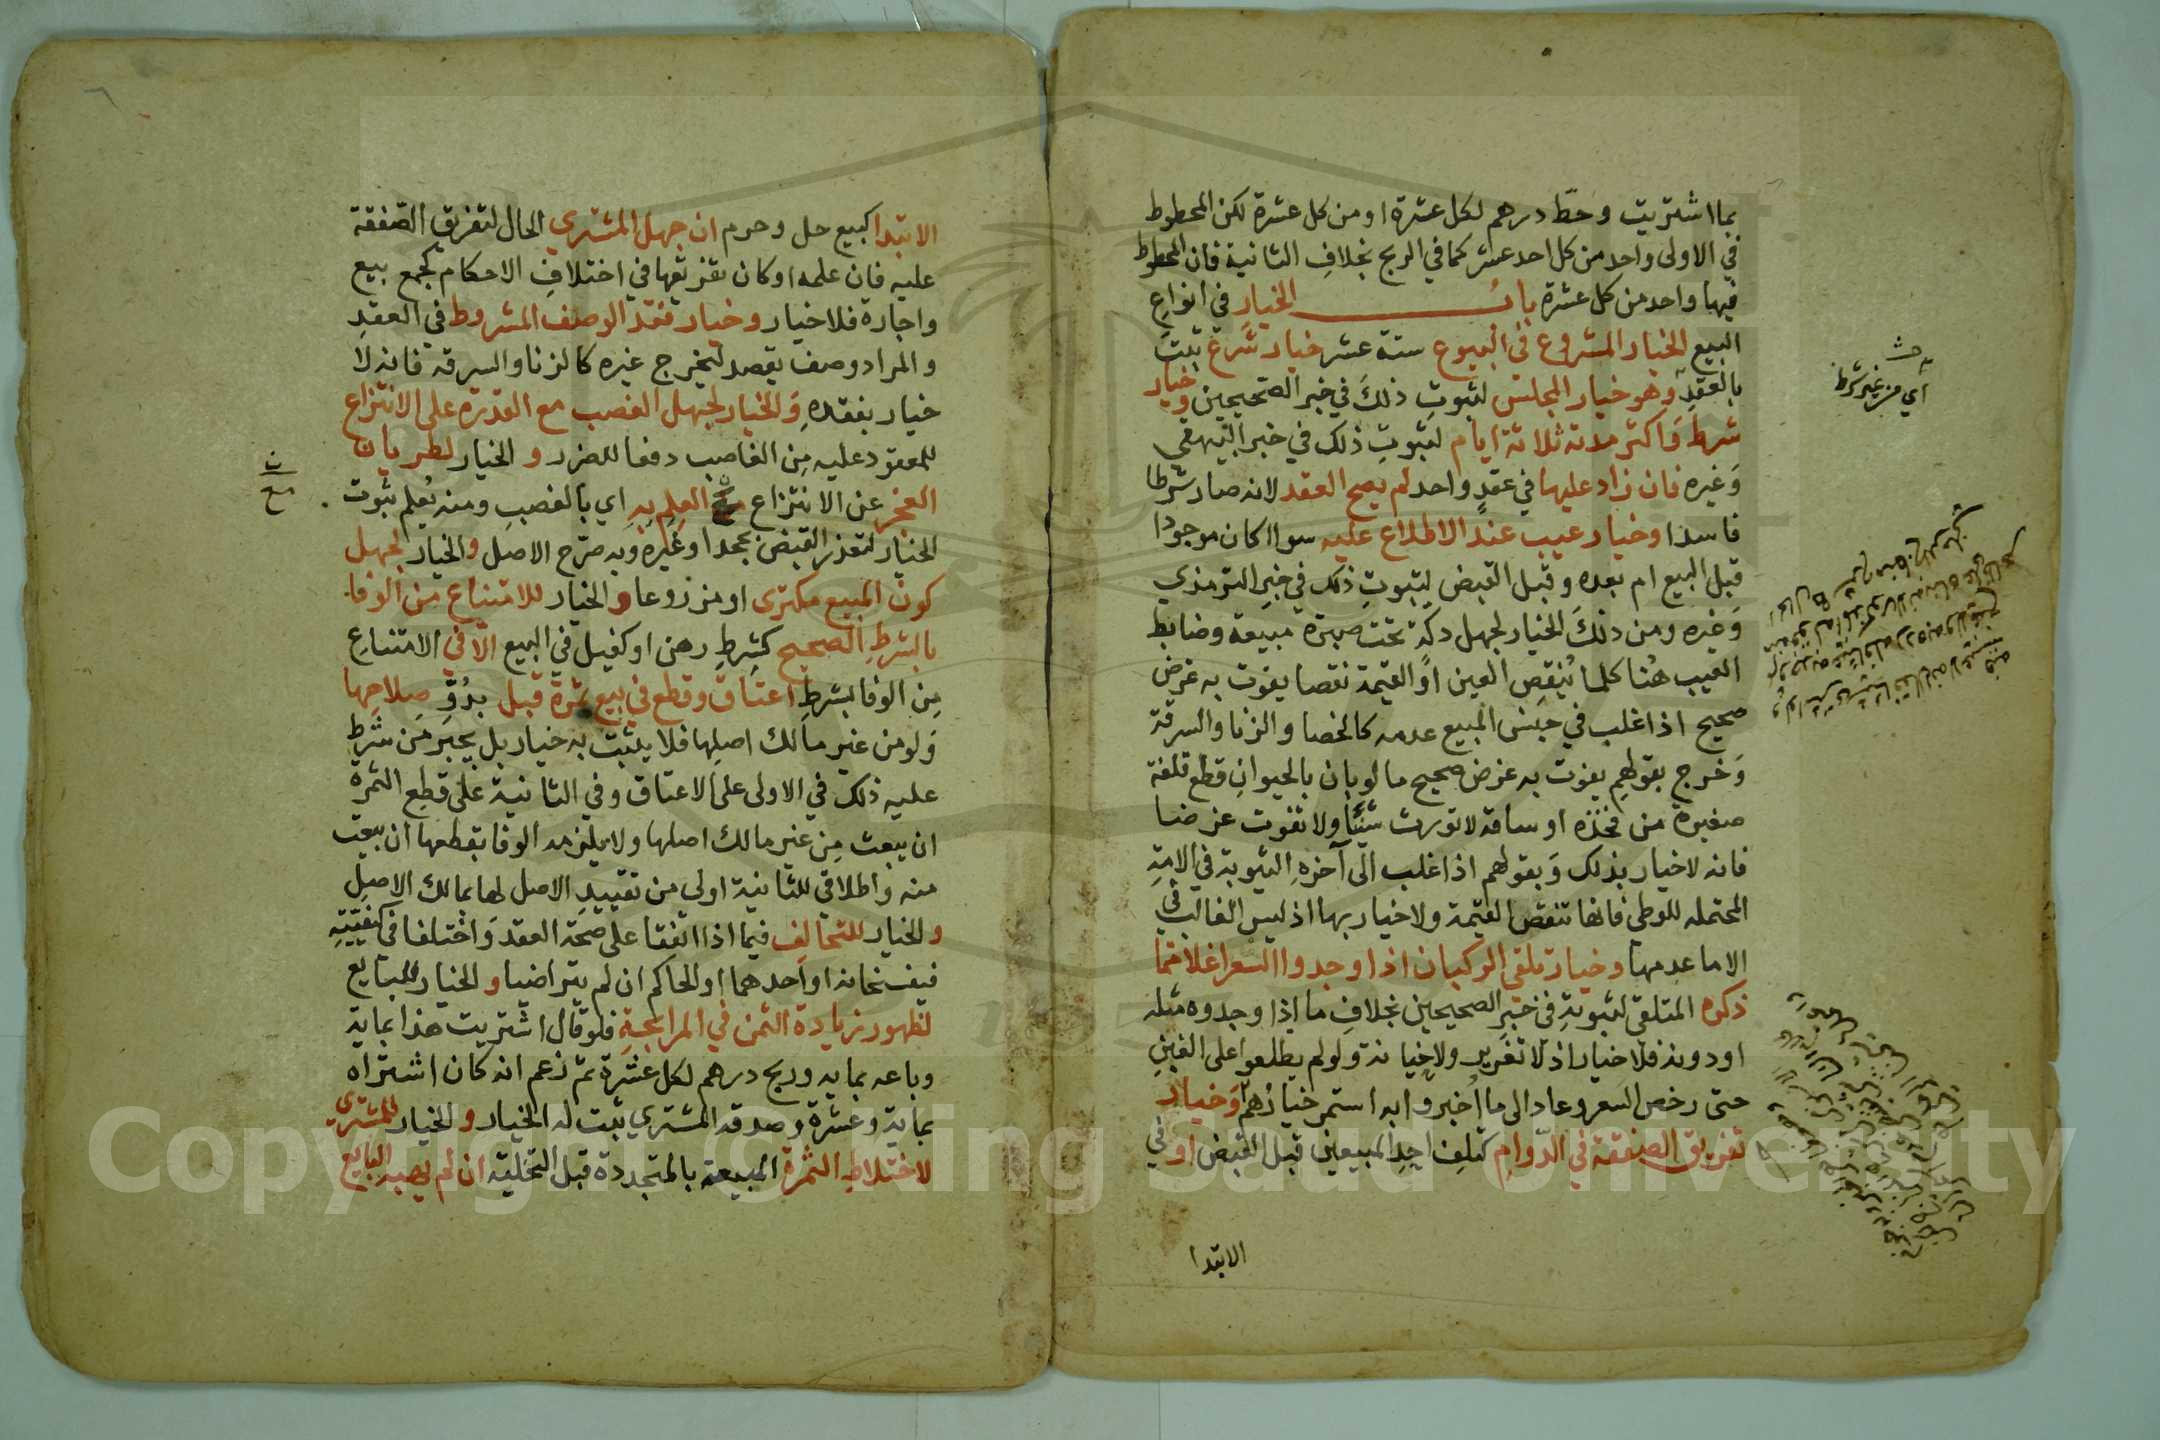 بما اشتريت وحط درهم لكل عشرة او من كل عشرة لكن المحطوط
في الاولى واحد من كل احد عشر كما في الربح بخلاف الثانية فان المحطوط
فيها واحد من كل عشرة باب الخيار في انواع
البيع الخيار المشروع في البيوع ستة عشر خيار شرع يثبت
بالعقد وهو خيار المجلس لثبوت ذلك في خبر الصحيحين وخيار
شرط واكثر مدته ثلاثة ايام لثبوت ذلك في خبر البيهقي
وغيره فان زاد عليها في عقد واحد لم يصح العقد لانه صار شرطا
فاسدا وخيار عيب عند الاطلاع عليه سوا كان موجودا
قبل البيع ام بعده وقبل القبض لثبوت ذلك في خبر الترمذي
وغيره ومن ذلك الخيار لجهل دكة تحت صبرة مبيعة وضابط
العيب هنا كلما ينقص العين او القيمة نقصا يفوت به غرض
صحيح اذا غلب في جنس المبيع عدمه كالخصا والزنا والسرقة
وخرج بقولهم يفوت به غرض صحيح ما لو بان بالحيوان قطع فلقة
صغيرة من فخذه او ساقه لا تورث شيئا ولا تفوت غرضا
فانه لا خيار بذلك وبقولهم اذا غلب الى آخره الثيوبة في الامة
المحتمله للوطي فانها تنقص القيمة ولا خيار بها اذ ليس الغالب في
الاما عدمها وخيار تلقي الركبان اذا وجدوا السعر اغلا مما
ذكره المتلقي لثبوته في خبر الصحيحين بخلاف ما اذا وجدوه مثله
او دونه فلا خيار اذ لا تغرير ولا خيانة ولو لم يطلعوا على الغبن
حتى رخص السعر وعاد الى ما اخبروا به استمر خيارهم وخيار
تفريق الصفقة في الدوام كتلف احد المبيعين قبل القبض او في
الابتدا
اي من غير شرط
الابتدا كبيع حل وحرم ان جهل المشتري الحال لتفريق الصفقة
عليه فان علمه او كان تفريقها في اختلاف الاحكام كجمع بيع
واجارة فلا خيار وخيار فقد الوصف المشروط في العقد
والمراد وصف يقصد ليخرج غيره كالزنا والسرقه فانه لا
خيار بفقده والخيار لجهل الغصب مع القدرة على الانتزاع
للمعقود عليه من الغاصب دفعا للضرر والخيار لطريان
العجز عن الانتزاع مع العلم به اي بالغصب ومنه يعلم ثبوت
الخيار لتعذر القبض بجحد او غيره وبه صرح الاصل والخيار لجهل
كون المبيع مكترى او مزروعا والخيار للامتناع من الوفا
بالشرط الصحيح كشرط رهن او كفيل في البيع الا في الامتناع
من الوفا بشرط اعتاق وقطع في بيع ثمرة قبل بدو صلاحها
ولو من غير مالك اصلها فلا يثبت به خيار بل يجبر من شرط
عليه ذلك في الاولى على الاعتاق وفي الثانية على قطع الثمرة
ان بيعت من غير مالك اصلها ولا يلزمه الوفا بقطعها ان بيعت
منه واطلاقي للثانية اولى من تقييد الاصل لها بمالك الاصل
والخيار للتحالف فيما اذا اتفقا على صحة العقد واختلفا في كيفيته
فيفسخانه او احدهما او الحاكم ان لم يتراضيا والخيار للبايع
لظهور زيادة الثمن في المرابحة فلو قال اشتريت هذا بماية
وباعه بمايه وربح درهم لكل عشرة ثم زعم انه كان اشتراه
بماية وعشرة وصدقه المشتري ثبت له الخيار والخيار للمشتري
لاختلاط الثمرة المبيعة بالمتجددة قبل التخلية ان لم يهبه البايع